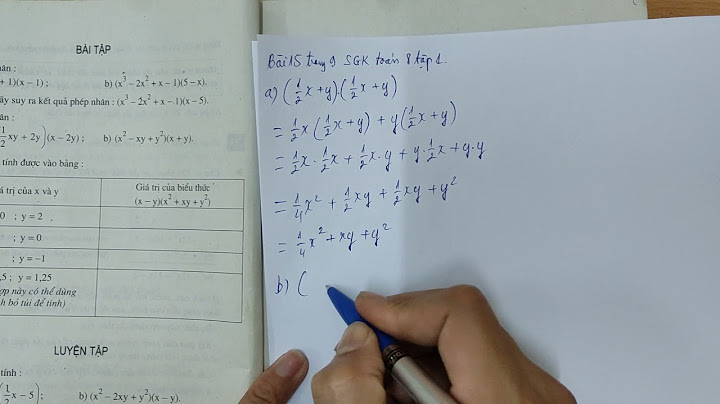 BÀI TẬP
+ 1)(x − 1) ; b) (x³ − 2x² + x − 1)(5 − x).
ãy suy ra kết quả phép nhân : (x³ − 2x² + x − 1)(x − 5).
xy + 2y)(x − 2y) ; b) (x² − xy + y²)(x + y).
tính được vào bảng :
á trị của x và y Giá trị của biểu thức
(x − y)(x² + xy + y²)
0 ; y = 2
; y = 0
; y = −1
,5 ; y = 1,25
ợp này có thể dùng
h bỏ túi để tính)
LUYỆN TẬP
tính :
1/2 x − 5) ; b) (x² − 2xy + y²)(x − y).
Bài 15 trang 9 SGK toán 8 tập 1.
a) (1/2x + y).(1/2x + y)
= 1/2x(1/2x + y) + y(1/2x + y)
= 1/2x . 1/2x + 1/2x . y + y . 1/2x + y . y
= 1/4x² + 1/2xy + 1/2xy + y²
= 1/4x² + xy + y²
b) (